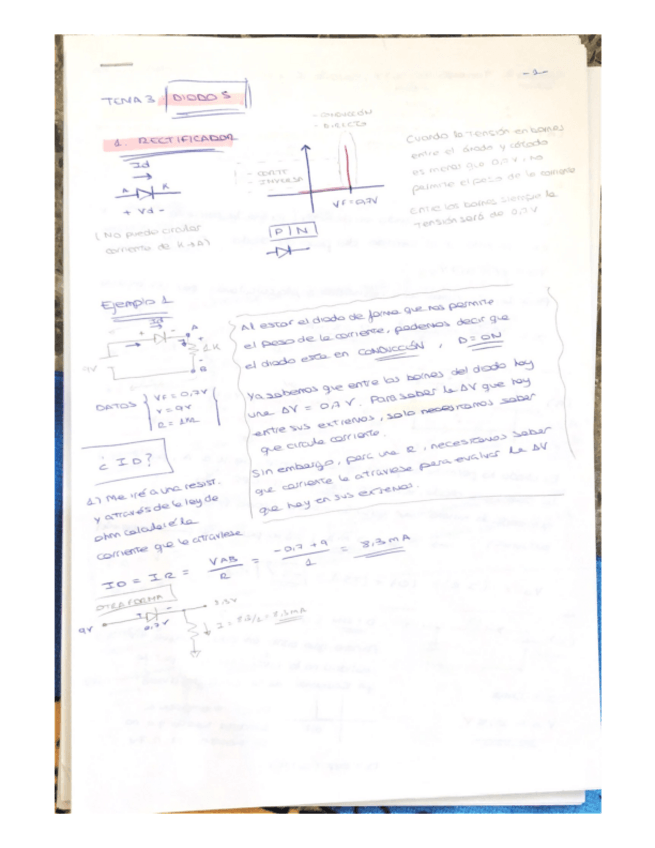 -1-
TEMA 3 DIODOS
1. RECTIFICADOR
- CONDUCCIÓN
- DIRECTO
- CORTE
- INVERSA
VF=0,7V
Id
A K
+ Vd -
(No puede circular
corriente de K→A)
P | N
Cuando la tensión en bornes
entre el ánodo y cátodo
es menor que 0,7V, no
permite el paso de la corriente
Entre los bornes siempre la
tensión será de 0,7V
Ejemplo 1
Id
+ - A
+
1K
9V
-
B
DATOS
VF=0,7V
V=9V
R=1K
¿ID?
Al estar el diodo de forma que nos permite
el paso de la corriente, podemos decir que
el diodo está en CONDUCCIÓN, D=ON
Ya sabemos que entre los bornes del diodo hay
una ΔV = 0,7V. Para saber la ΔV que hay
entre sus extremos, solo necesitamos saber
que circula corriente.
Sin embargo, para una R, necesitamos saber
que corriente la atraviese para evaluar la ΔV
que hay en sus extremos.
1) Me iré a una resist.
y a través de la ley de
ohm calcularé la
corriente que la atraviese
ID = IR = VAB / R = -0,7+9 / 1 = 8,3mA
OTRA FORMA
9V
0,7V